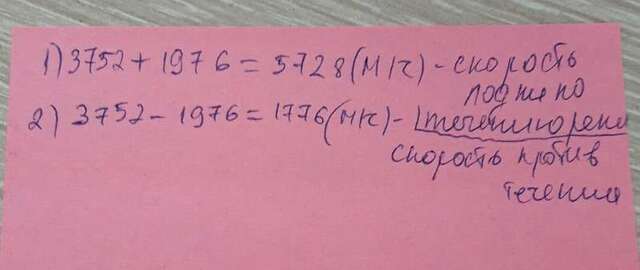 1) 3752 + 1976 = 5728 (м/с) - скорость
лодки по
2) 3752 - 1976 = 1776 (м/с) - течению реки
скорость против
течения